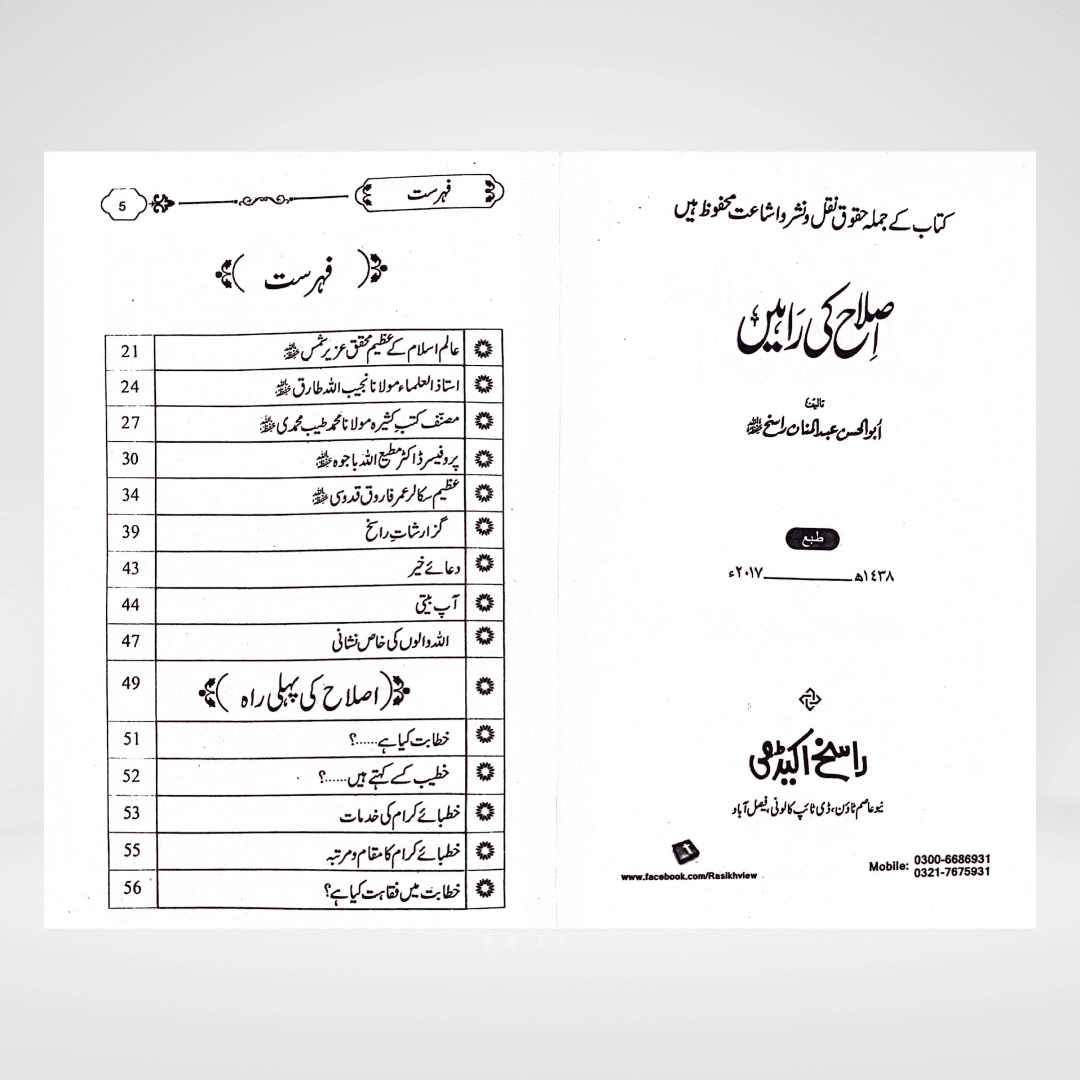 کتاب کے جملہ حقوق نقل و نشر و اشاعت محفوظ ہیں
اِصلاح کی رَاہیں
تالیف
أبوالحسن عبدالمنان راسخ ﷾
طبع
١٤٣٨ھ ــــــــــــ ٢٠١٧ء
راسخ اکیڈمی
نیو عاصم ٹاؤن، ڈی ٹائپ کالونی، فیصل آباد
www.facebook.com/Rasikhview
Mobile: 0300-6686931
0321-7675931
فہرست 5
فہرست
عالم اسلام کے عظیم محقق عزیر شمس ﷾ 21
استاذ العلماء مولانا نجیب اللہ طارق ﷾ 24
مصنّف کتبِ کثیرہ مولانا محمد طیب محمدی ﷾ 27
پروفیسر ڈاکٹر مطیع اللہ باجوہ ﷾ 30
عظیم سکالر عمر فاروق قدوسی ﷾ 34
گزارشاتِ راسخ 39
دعائے خیر 43
آپ بیتی 44
اللہ والوں کی خاص نشانی 47
(اصلاح کی پہلی راہ) 49
خطابت کیا ہے......؟ 51
خطیب کسے کہتے ہیں......؟ 52
خطبائے کرام کی خدمات 53
خطبائے کرام کا مقام و مرتبہ 55
خطابت میں فقاہت کیا ہے؟ 56